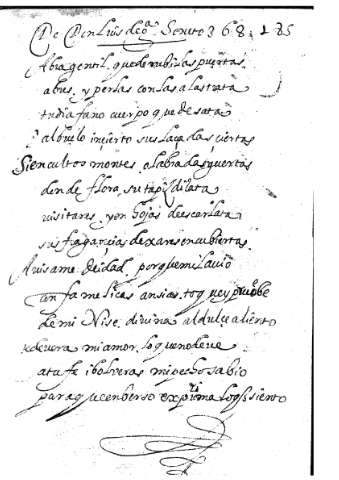 De Don Luis de Gª. Soneto 368. 185
Abra gentil. que de rubi las puertas
abres. y perlas con las alas trata
tu diafano cuerpo que desata
al buelo incierto sus laçadas ciertas
Si en cultos montes. o labradas guertas
donde flora. su tapiz dilata
visitares. y en hojas de escarlata
sus fragancias dexares encubiertas
Auisame deidad. porque mi lavio
con famelicas ansias. toque y pruebe
de mi Nise. diuina al dulce aliento
deuera mi amor. lo que no deve
a tu fe i bolveras mi pecho sabio
para que en berso exprima lo q siento